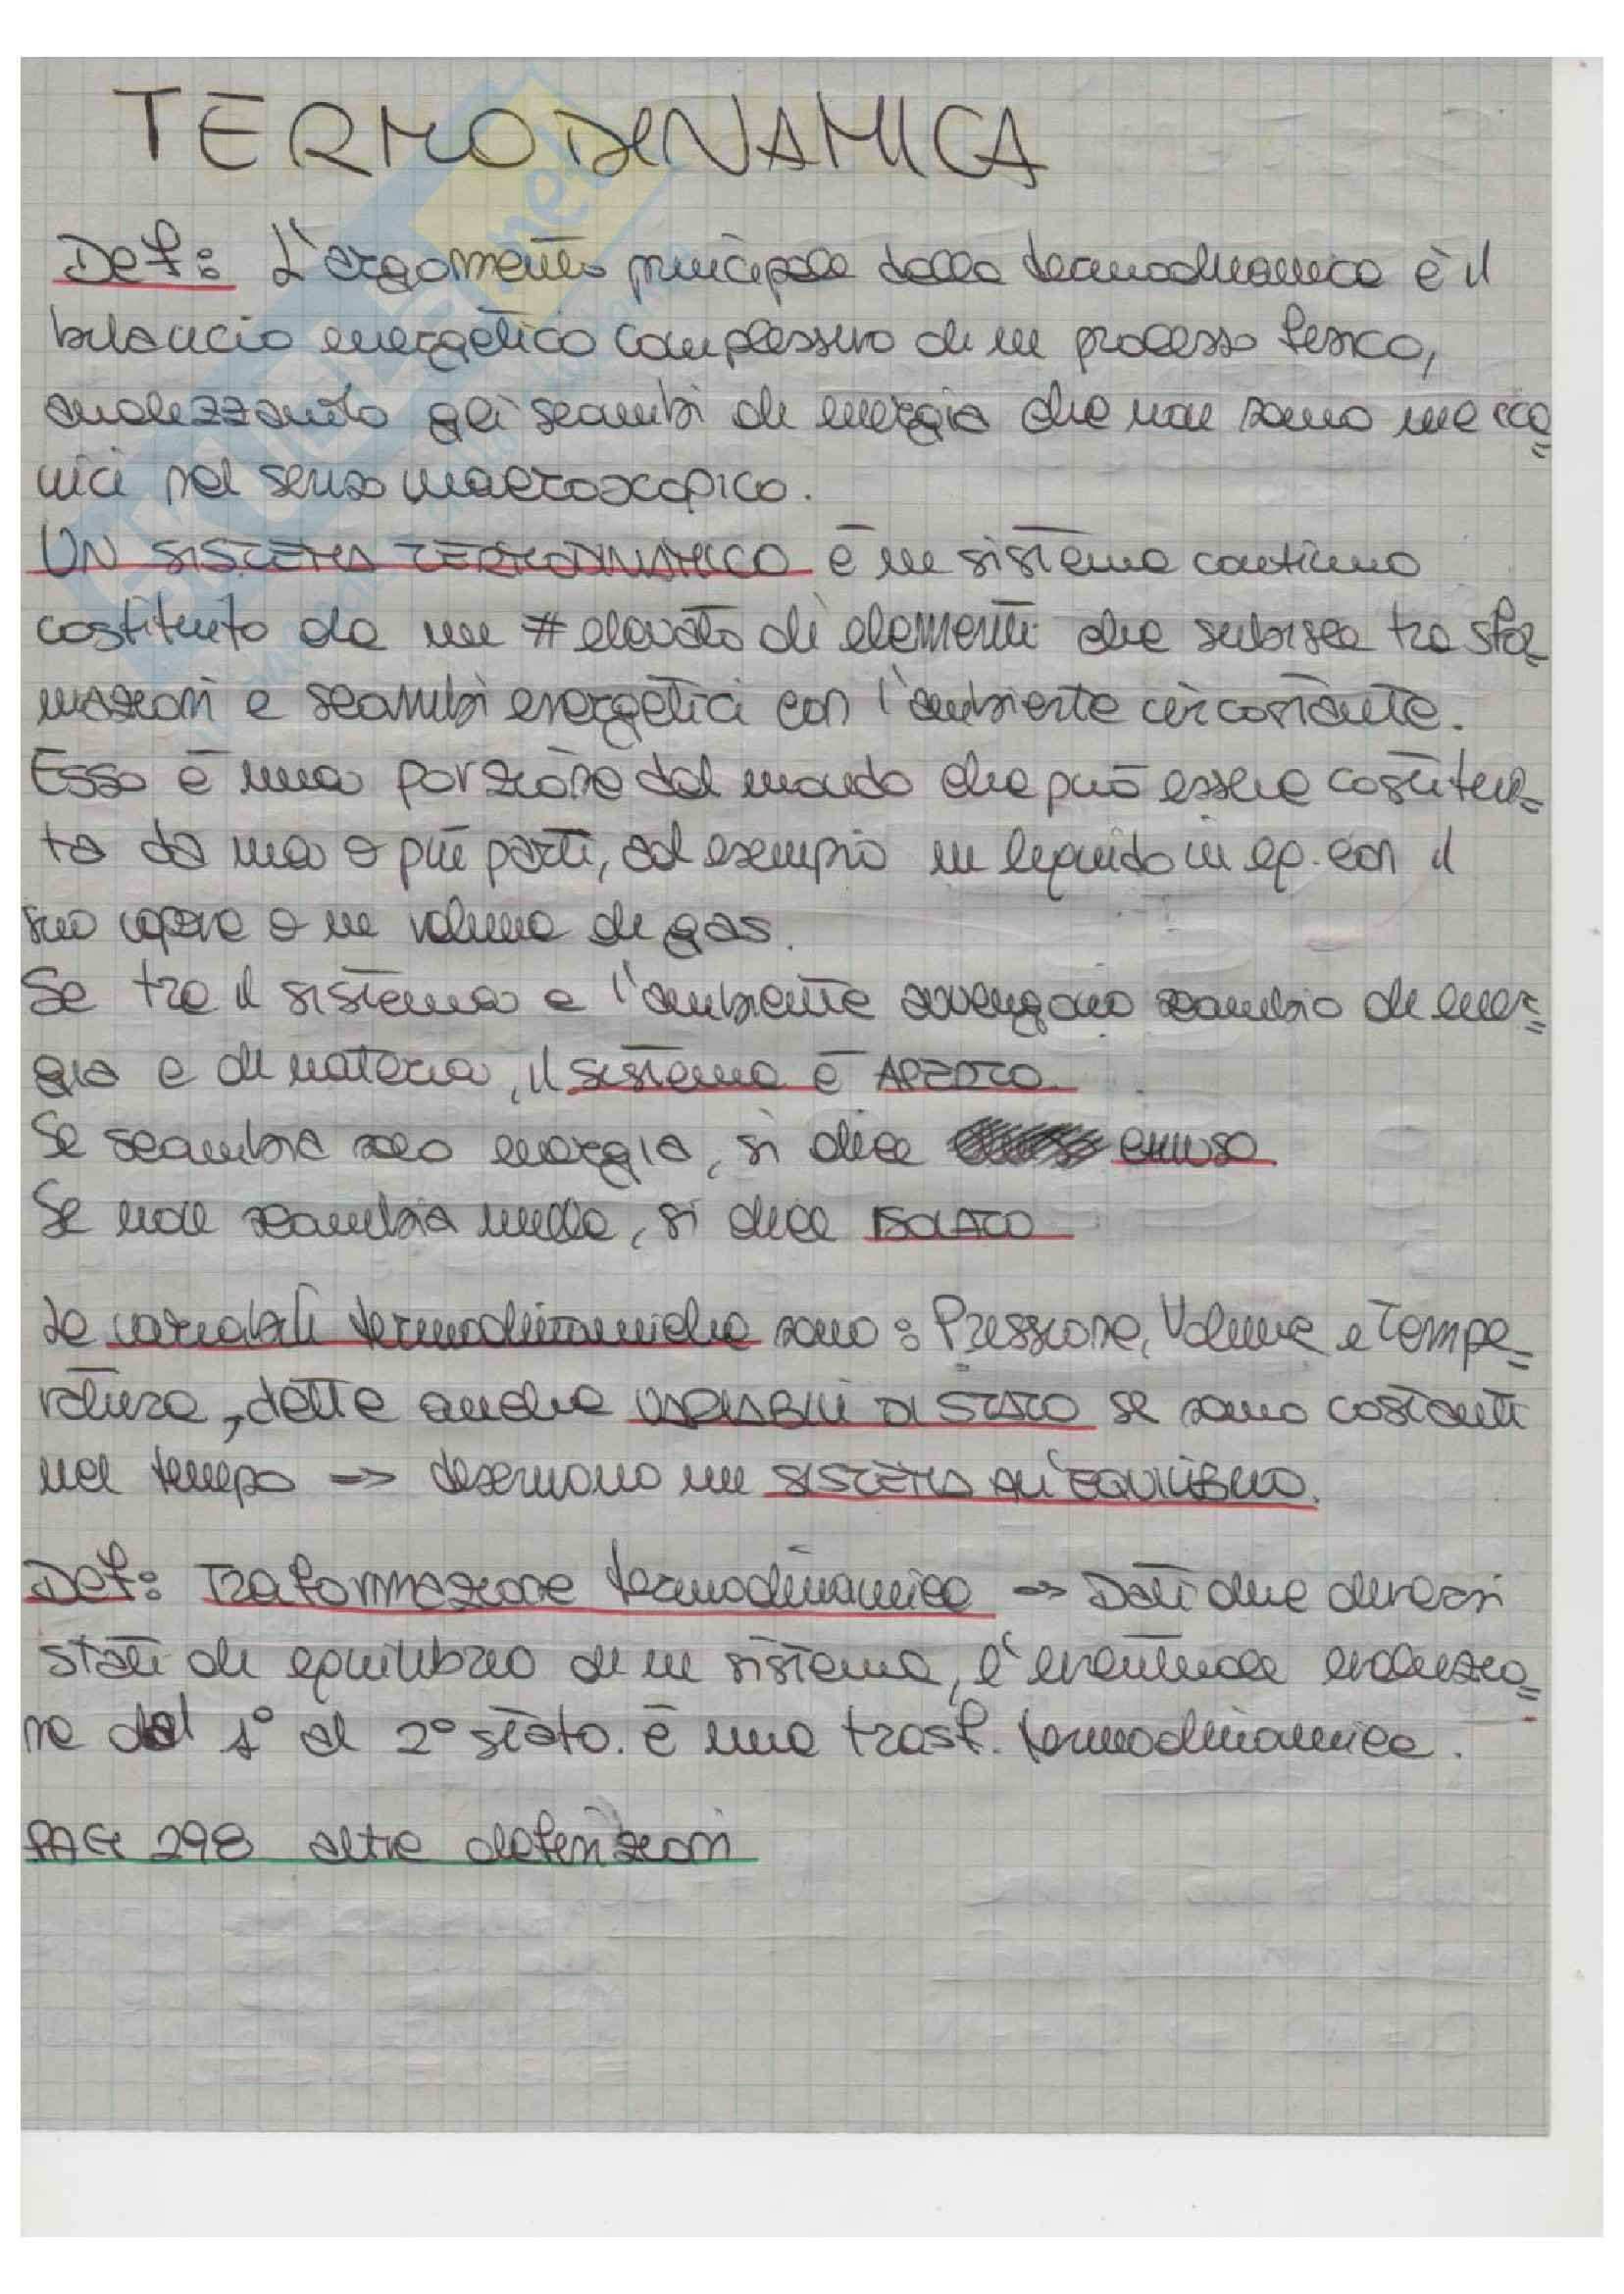 TERMODINAMICA
Def: L'argomento principale della termodinamica è il
bilancio energetico complessivo di un processo fisico,
analizzando gli scambi di energia che non sono mecca=
nici nel senso macroscopico.
UN SISTEMA TERMODINAMICO è un sistema continuo
costituito da un # elevato di elementi che subisce trasfor-
mazioni e scambi energetici con l'ambiente circostante.
Esso è una porzione del mondo che può essere costitui=
ta da una o più parti, ad esempio un liquido in eq. con il
suo vapore o un volume di gas.
Se tra il sistema e l'ambiente avvengono scambio di ener=
gia e di materia, il sistema è APERTO.
Se scambia solo energia, si dice CHIUSO.
Se non scambia nulla, si dice ISOLATO
Le variabili termodinamiche sono: Pressione, Volume e Tempe=
ratura, dette anche VARIABILI DI STATO se sono costanti
nel tempo => descrivono un SISTEMA ALL'EQUILIBRIO.
Def: Traformazione termodinamica => Dati due diversi
stati di equilibrio di un sistema, l'eventuale evoluzio=
ne dal 1° al 2° stato. è una trasf. termodinamica.
PAG 298 altre definizioni
SKUOLA.net